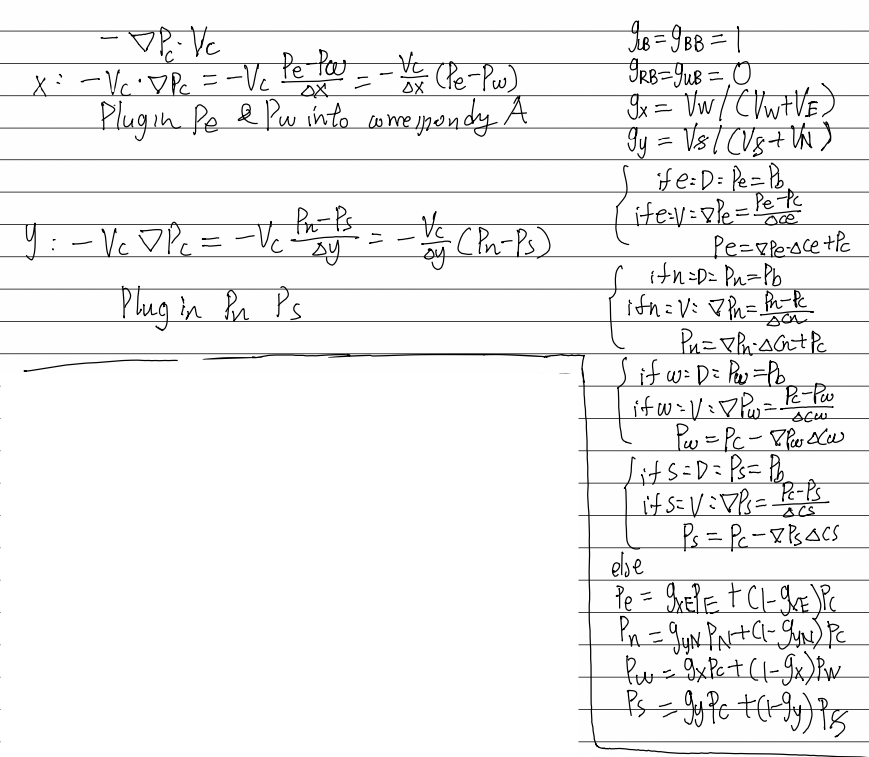 - ∇Pc · Vc
x : - Vc · ∇Pc = -Vc (Pe-Pw)/Δx = - Vc/Δx (Pe-Pw)
Plug in Pe & Pw into A
y : - Vc ∇Pc = -Vc (Pn-Ps)/Δy = - Vc/Δy (Pn-Ps)
Plug in Pn Ps
gLB = gBB = 1
gRB = gUB = 0
gx = Vw / (Vw + VE)
gy = Vs / (Vs + VN)
if e = D = Pe = Pb
if e = V = ∇Pe = (Pe-Pc)/Δce
Pe = ∇Pe · Δce + Pc
if n = D = Pn = Pb
if n = V = ∇Pn = (Pn-Pc)/Δcn
Pn = ∇Pn · Δcn + Pc
if w = D = Pw = Pb
if w = V = ∇Pw = (Pc-Pw)/Δcw
Pw = Pc - ∇Pw Δcw
if s = D = Ps = Pb
if s = V = ∇Ps = (Pc-Ps)/Δcs
Ps = Pc - ∇Ps Δcs
else
Pe = gxE PE + (1-gxE) Pc
Pn = gyN PN + (1-gyN) Pc
Pw = gx Pc + (1-gx) PW
Ps = gy Pc + (1-gy) PS